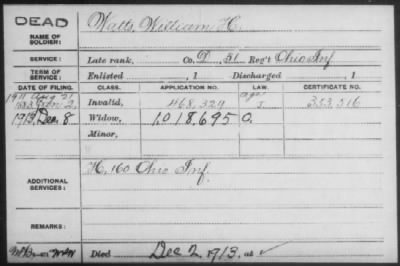 DEAD
NAME OF SOLDIER:
Watts, William H.
SERVICE:
Late rank, Co. D, 51 Reg't Ohio Inf.
TERM OF SERVICE:
Enlisted , 1 Discharged , 1
DATE OF FILING. CLASS. APPLICATION NO. LAW. CERTIFICATE NO.
Invalid, 468,329 J. 353,316
1913, Dec. 8 Widow, 1,018,695 O.
Minor,
ADDITIONAL SERVICES:
H, 160 Ohio Inf.
REMARKS:
Died Dec 2, 1913, at